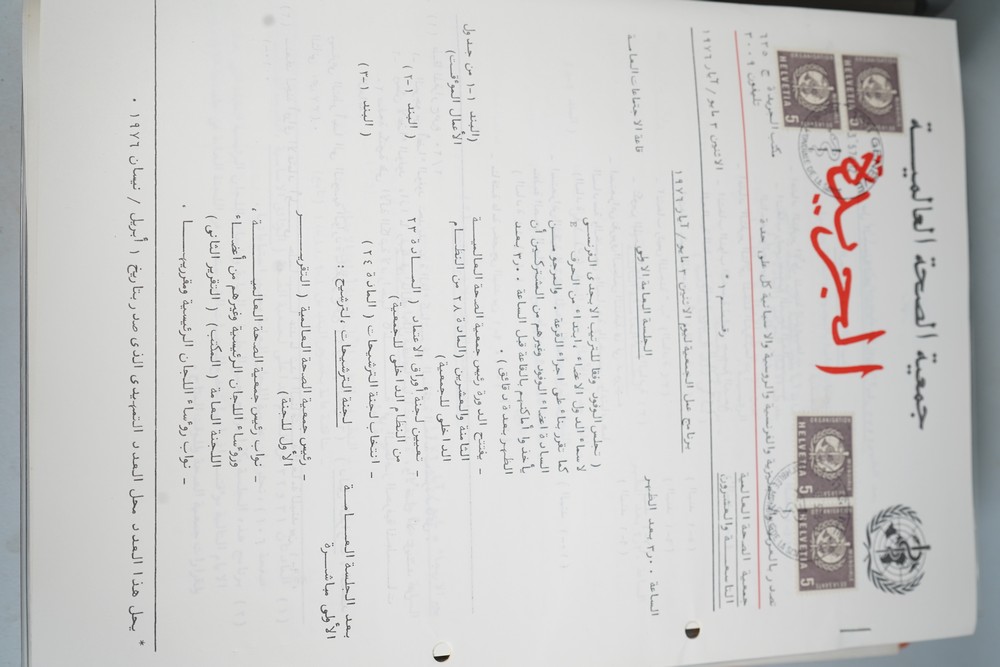 جمعية الصحة العالمية
HELVETIA 5
HELVETIA 5
HELVETIA 5
HELVETIA 5
الجريدة
تصدر بالعربية والانجليزية والفرنسية والروسية والاسبانية كل على حدة
مكتب الجريدة ج ٦٢٥
تليفون ٣٠٠٩
جمعية الصحة العالمية
التاسعة والعشرون
رقم ١*
الاثنين ٣ مايو / آيار ١٩٧٦
برنامج عمل الجمعية ليوم الاثنين ٣ مايو / آيار ١٩٧٦
الساعة ٣٫٠٠ بعد الظهر
الجلسة العامة الاولى
قاعة الاجتماعات العامة
( تجلس الوفود وفقا للترتيب الابجدى الفرنسي
لاسماء الدول الاعضاء ، بابتداء من الحرف E
كما تقرر بناء على اجراء القرعة . والمرجو من
السادة أعضاء الوفود وغيرهم من المشتركين أن
يأخذوا أماكنهم بالقاعة قبل الساعة ٣٫٠٠ بعد
الظهر بعدة دقائق ) .
- يفتتح الدورة رئيس جمعية الصحة العالمية
الثامنة والعشرين (المادة ٢٨ من النظام
الداخلى للجمعية)
(البند ١-١ من جدول
الأعمال المؤقت)
- تعيين لجنة أوراق الاعتماد ( المادة ٢٣
من النظام الداخلى للجمعية)
( البند ١-٢)
- انتخاب لجنة الترشيحات ( المادة ٢٤)
( البند ١-٣)
بعد الجلسة العامة
الأولى مباشرة
لجنة الترشيحات ، لترشيح :
- رئيس جمعية الصحة العالمية ( التقرير
الأول للجنة)
- نواب رئيس جمعية الصحة العالمية ،
ورؤساء اللجان الرئيسية وغيرهم من أعضاء
اللجنة العامة ( المكتب) ( التقرير الثانى)
- نواب رؤساء اللجان الرئيسية ومقرريها .
* يحل هذا العدد محل العدد التمهيدى الذى صدر بتاريخ ١ أبريل / نيسان ١٩٧٦ .